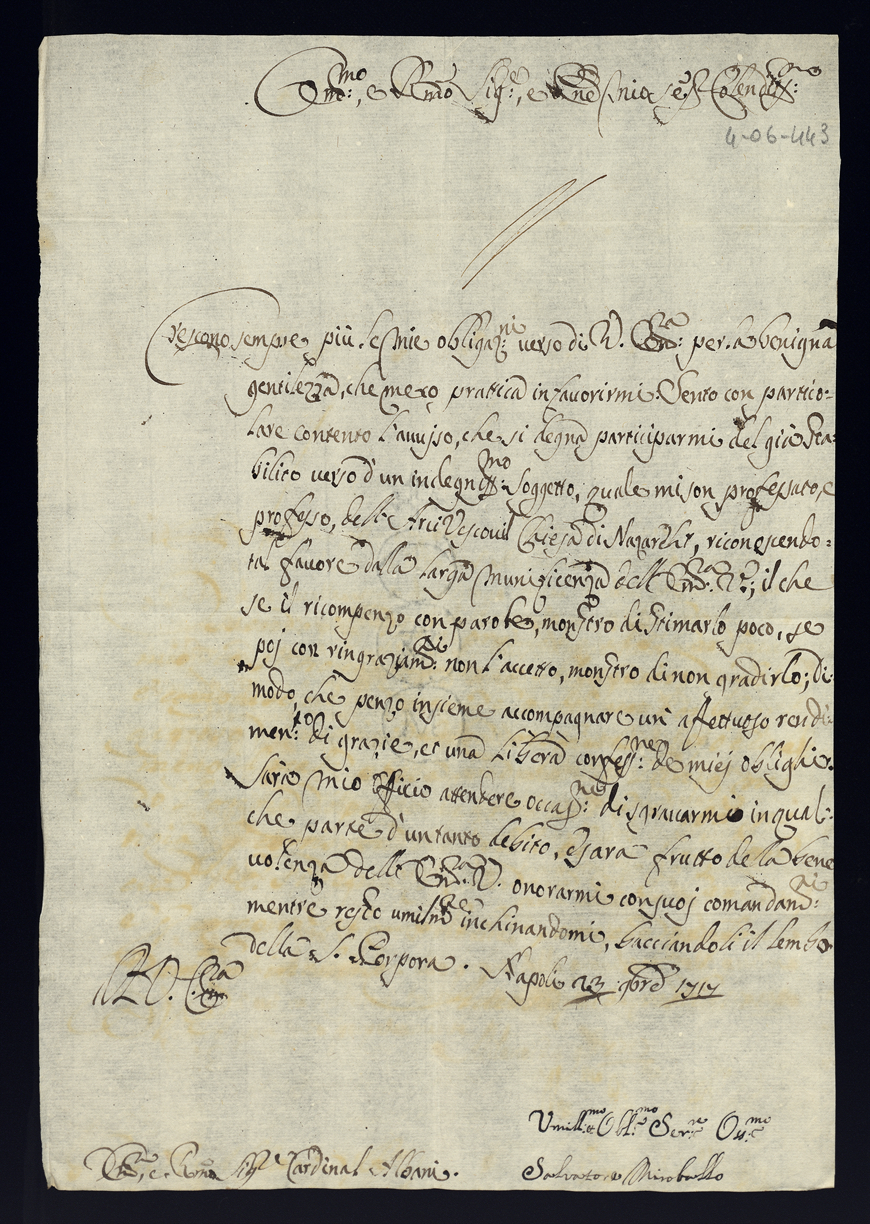 Em.mo, e R.mo Sig.re, e P.ne mio sempre Colendis.mo
4-06-443
Crescono sempre più le mie obligaz.ni verso di V. Em.za per la benigna
gentilezza, che meco prattica in favorirmi: Sento con partico-
lare contento l'avviso, che si degna participarmi del già sta-
bilito verso d'un indegniss.mo soggetto, quale mi son professato, e
professo, dell'ArciVescovil Chiesa di Nazareht, riconescendo
tal favore dalla larga munificenza dell'Em.za V.; il che
se il ricompenzo con parole, monstro di stimarlo poco, se
poj con ringraziam.ti non l'accetto, monstro di non gradirlo; di
modo, che penzo insieme accompagnare un' affettuoso rendi-
men.to di grazie, et una libera confess.ne de miej oblighi.
Sarà mio officio attendere occas.ne di sgravarmi in qual-
che parte d'un tanto debito, e sarà frutto della bene
volenza dell'Em.za V. onorarmi con suoj comandam.ti
mentre resto umilm.te inchinandomi, bacciandoli il lembo
della S. Porpora. Napoli 23 9bre 1717
D. V. Em.za
Umill.mo Obl.mo Ser.re Oss.mo
Em.o, e R.mo Sig.re Cardinal Albani.
Salvatore Miroballo